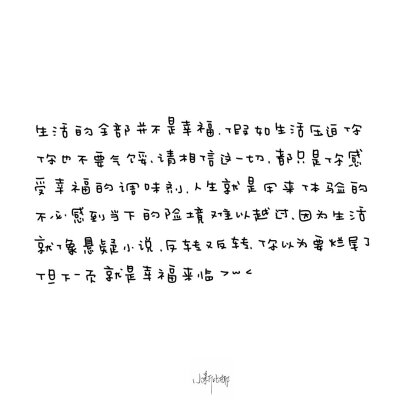 生活的全部并不是幸福,假如生活压迫你
你也不要气馁,请相信这一切,都只是你感
受幸福的调味剂,人生就是用来体验的
不必感到当下的险境难以越过,因为生活
就像悬疑小说,反转又反转,你以为要烂尾了
但下一页就是幸福来临>w<